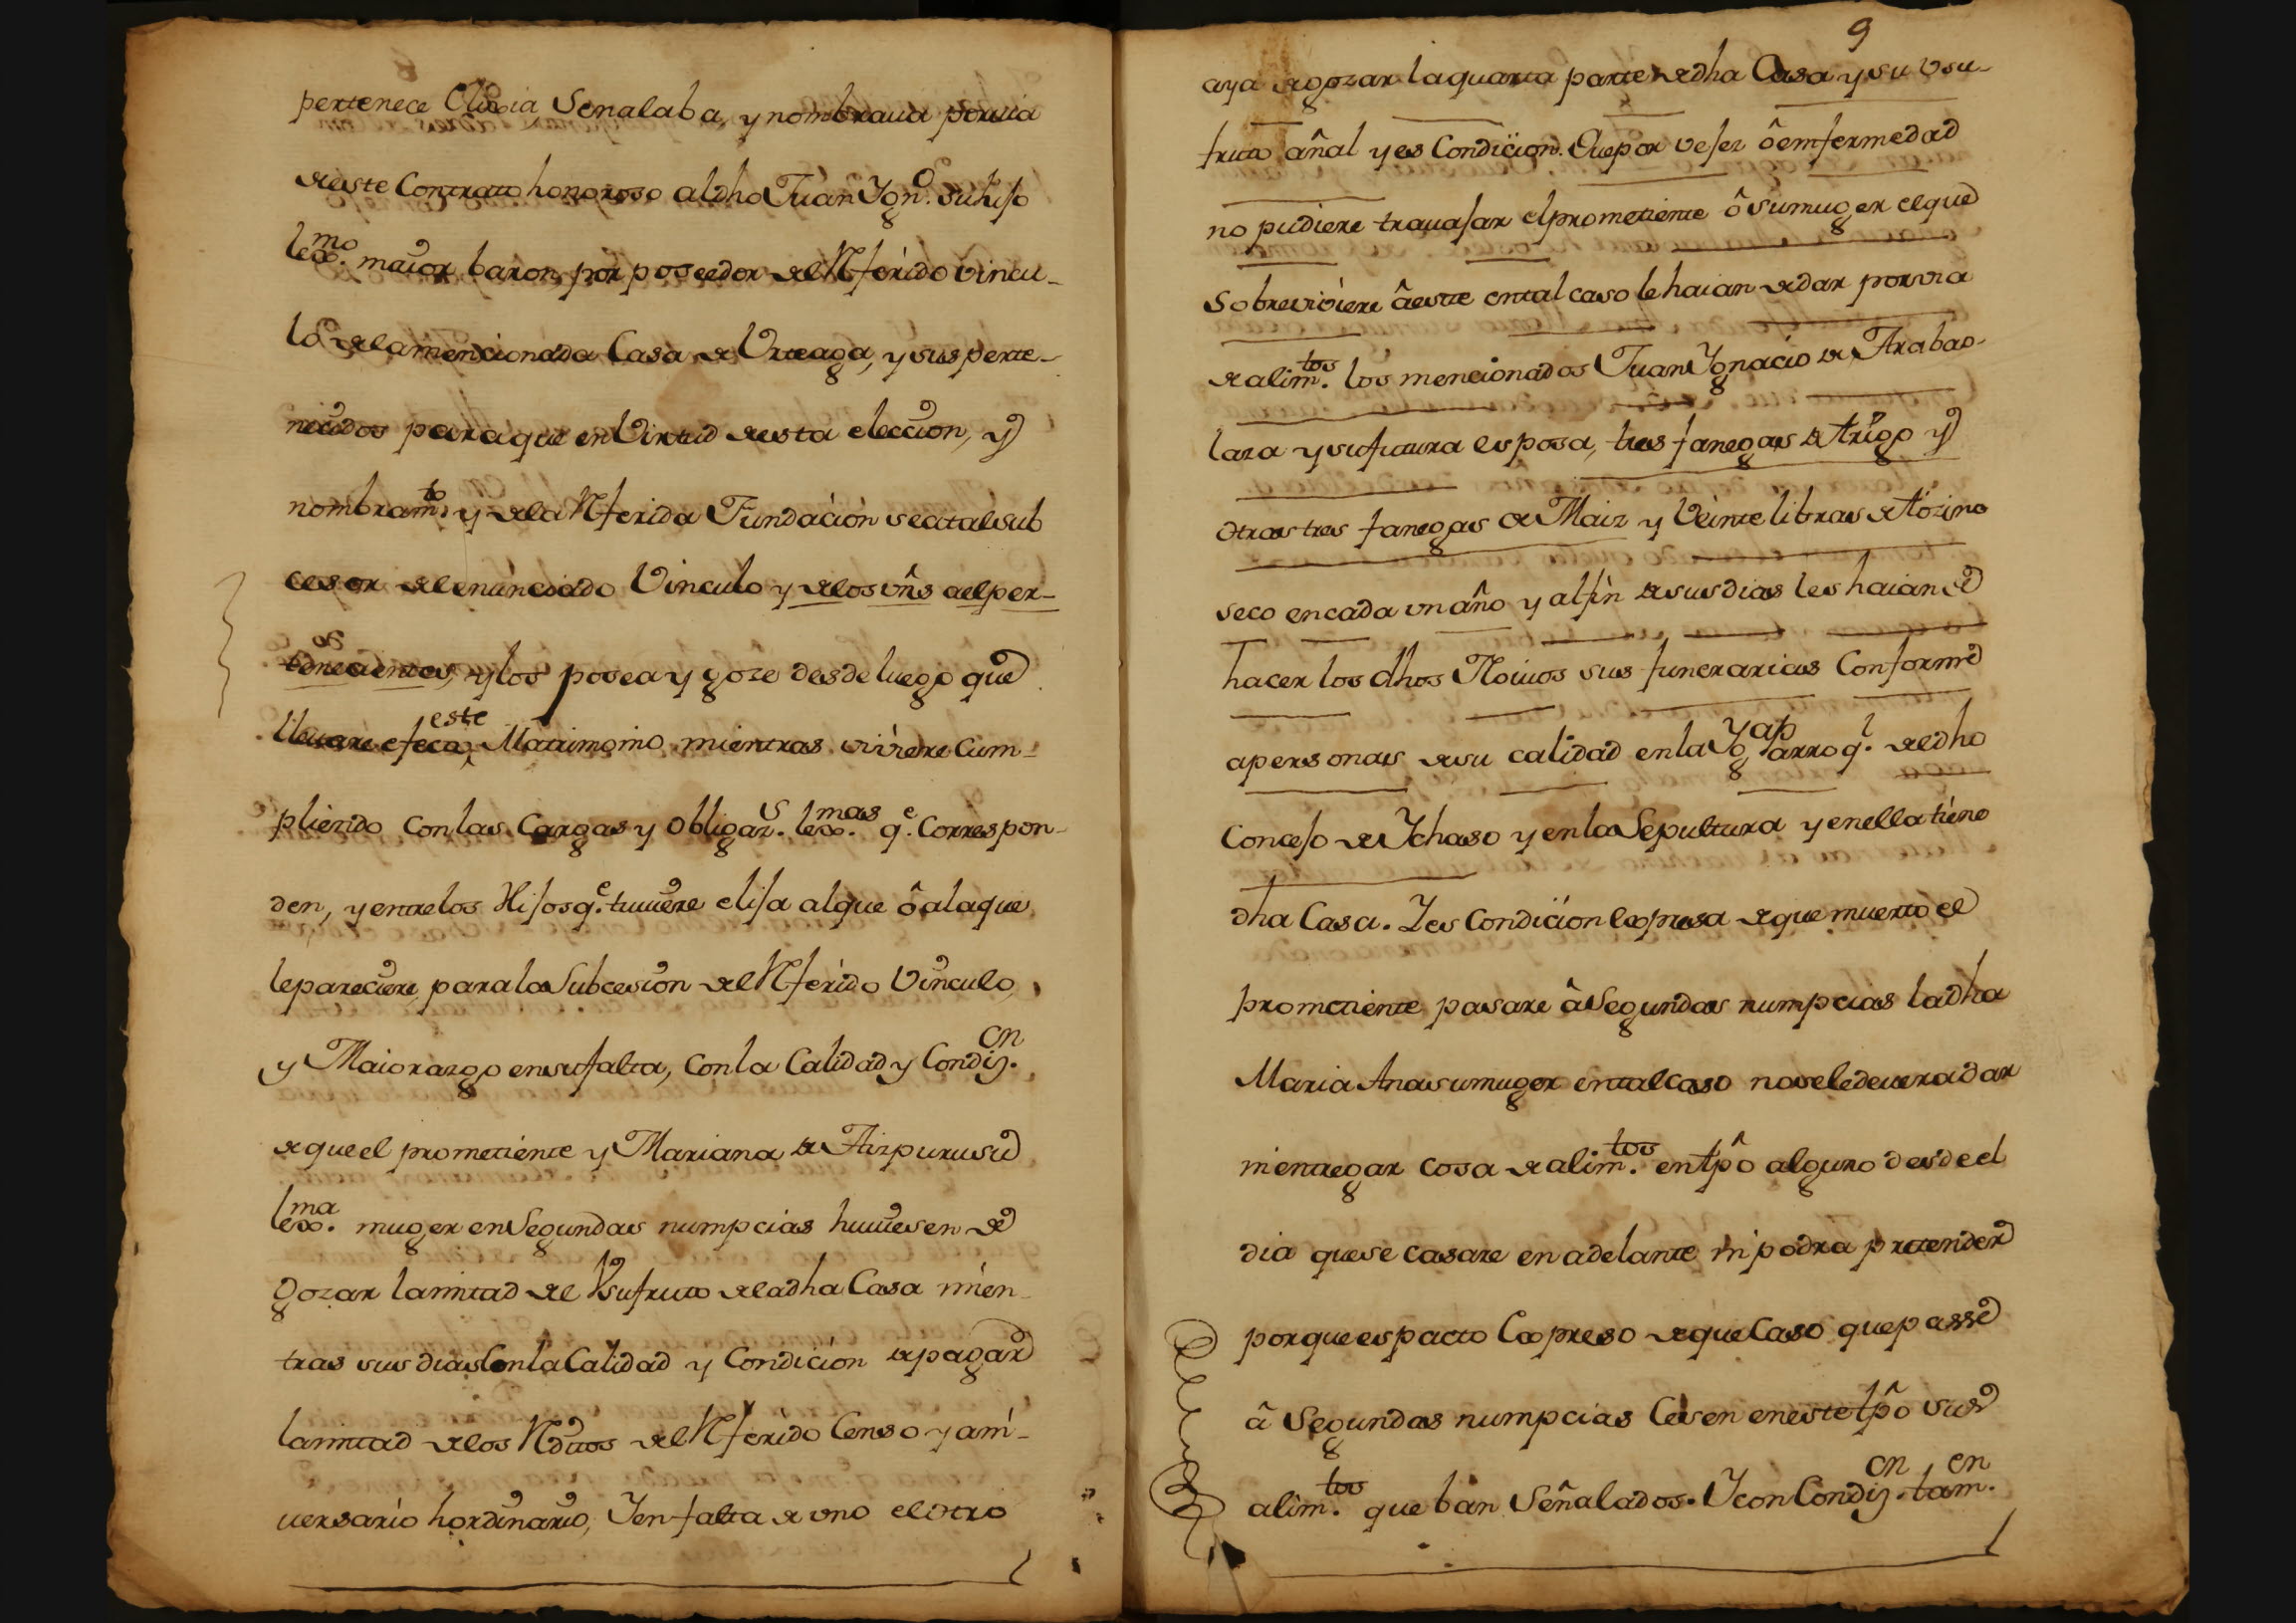 pertenece Elixia, Señalaba, y nombraua por via
de este Contrato honoroso al dho Juan Ygn.º su hijo
lex.mo maior baron, por poseedor del Rferido vincu-
lo de la mencionada Casa de Urteaga, y sus perte-
necidos para que en Virtud de esta eleccion, y
nombram.to y de la Rferida Fundacion sea tal sub
cesor del enunciado Vinculo y de los vñs a el per-
tenecientes, y los posea y goze desde luego que
lleuare efecto este Matrimonio, mientras viviere Cum-
pliendo Con las Cargas y Obligaz.s lex.mas q.e Correspon-
den, y entre los Hijos q.e tuuiere elija al que ô a la que
le pareciere, para la Subcesion del Rferido Vinculo,
y Maiorazgo en su falta, con la Calidad y Condiz.on
de que el prometiente y Mariana de Aizpuru su
lex.ma muger en Segundas numpcias huuiesen de
Gozar la mitad del Vsufruto de la dha Casa mien-
tras sus dias Con la Calidad y Condicion de pagar
la mitad de los Rditos del Rferido Censo y ani-
uersario hordinario, Y en falta de vno el otro
9
aya de gozar la quarta parte de dha Casa y su vsu-
fruto añal y es Condicion. Que por vejez ô emfermedad
no pudiere trauajar el prometiente ô su muger el que
Sobreviviere â este en tal caso le haian de dar por via
de alim.tos los mencionados Juan Ygnacio de Arabao-
laza y su futura esposa, tres fanegas de trigo y
otras tres fanegas de Maiz y Veinte libras de tozino
seco en cada vn año y al fin de sus dias les haian de
hacer los dhos Novios sus funerarias Conforme
a personas de su calidad en la Yg.a Parroq.l de dho
Concejo de Ychaso y en la Sepultura y en ella tiene
dha Casa. Y es Condicion expresa de que muerto el
prometiente pasare â Segundas numpcias la dha
Maria Ana su muger en tal caso no se le deuera dar
ni entregar cosa de alim.tos en tpô alguno desde el
dia que se casare en adelante ni podra pretender
porque es pacto Expreso de que Caso que passe
â Segundas numpcias Cesen en este tpô sus
alim.tos que ban Señalados. Y con Condiz.on tam.en